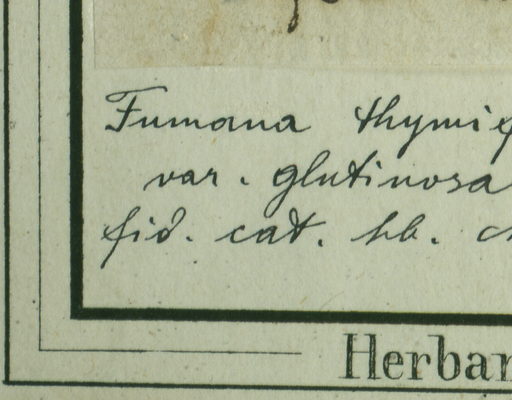 Fumana thymif
var. glutinosa
fid. cat. hb.
Herbar